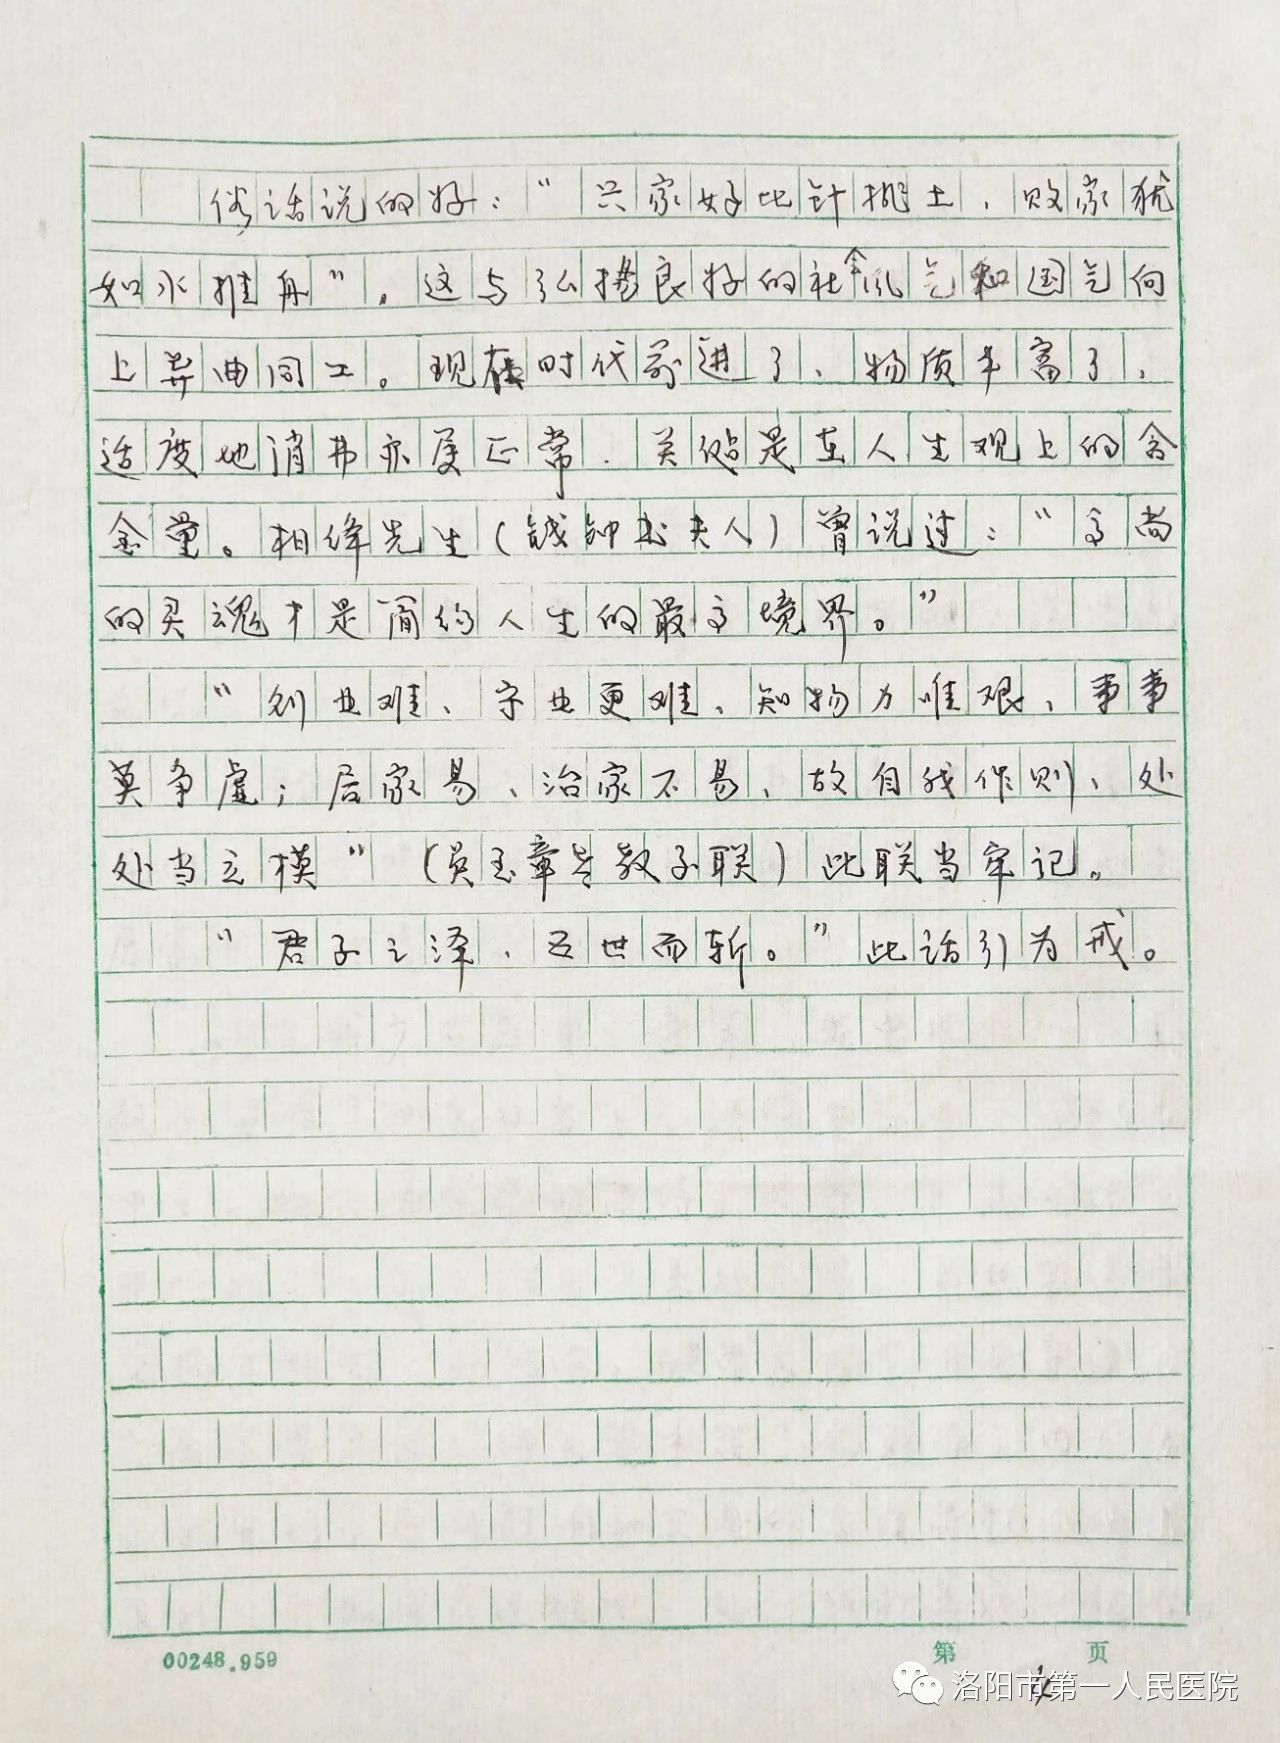 俗话说的好：“兴家好比针挑土，败家犹
如水推舟”。这与弘扬良好的社会风气和国气向
上异曲同工。现在时代前进了，物质丰富了，
适度地消费亦属正常．关键是在人生观上的含
金量。相绛先生（钱钟书夫人）曾说过：“高尚
的灵魂才是简约人生的最高境界。”
“创业难、守业更难、知物力唯艰、事事
莫争虚；居家易、治家不易、故自我作则、处
处当立模”（吴玉章老教子联）此联当牢记。
“君子之泽，五世而斩。”此话引为戒。
00248.959
第 4 页
洛阳市第一人民医院